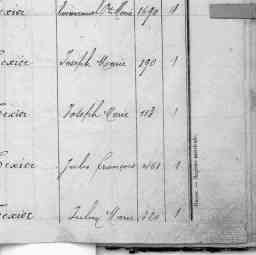 exier Emmanuel Ve Marie 1690 1
Texier Joseph Marie 190 1
Texier Joseph Marie 112 1
Texier Jules François 461 1
Texier Julien Marie 220 1